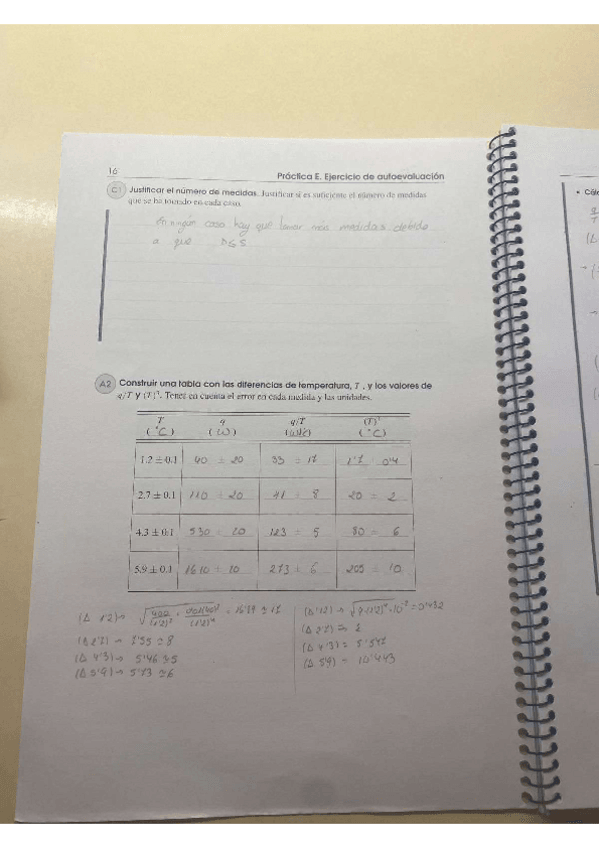 16
Práctica E. Ejercicio de autoevaluación
C1 Justificar el número de medidas. Justificar si es suficiente el número de medidas
que se ha tomado en cada caso.
En ningún caso hay que tomar más medidas debido
a que D≤S
A2 Construir una tabla con las diferencias de temperatura, T, y los valores de
q/T y (T)³. Tener en cuenta el error en cada medida y las unidades.
T q q/T (T)³
(°C) (W) (W/°C) (°C)
1.2 ± 0.1 40 ± 20 33 ± 17 0'4
2.7 ± 0.1 110 ± 20 41 ± 8 20 ± 2
4.3 ± 0.1 530 ± 20 123 ± 5 80 ± 6
5.9 ± 0.1 1610 ± 10 273 ± 6 205 ± 10
(Δ 1'2)→ = 16'79 ≃ 17
(Δ 2'7) → 7'55 ≃ 8
(Δ 4'3)→ 5'46 ≃ 5
(Δ 5'9)→ 5'73 ≃ 6
(Δ 1'2) → = 0'432
(Δ 2'7) ⇒ 2
(Δ 4'3) = 5'547
(Δ 5'9) = 10'443
• Cálc